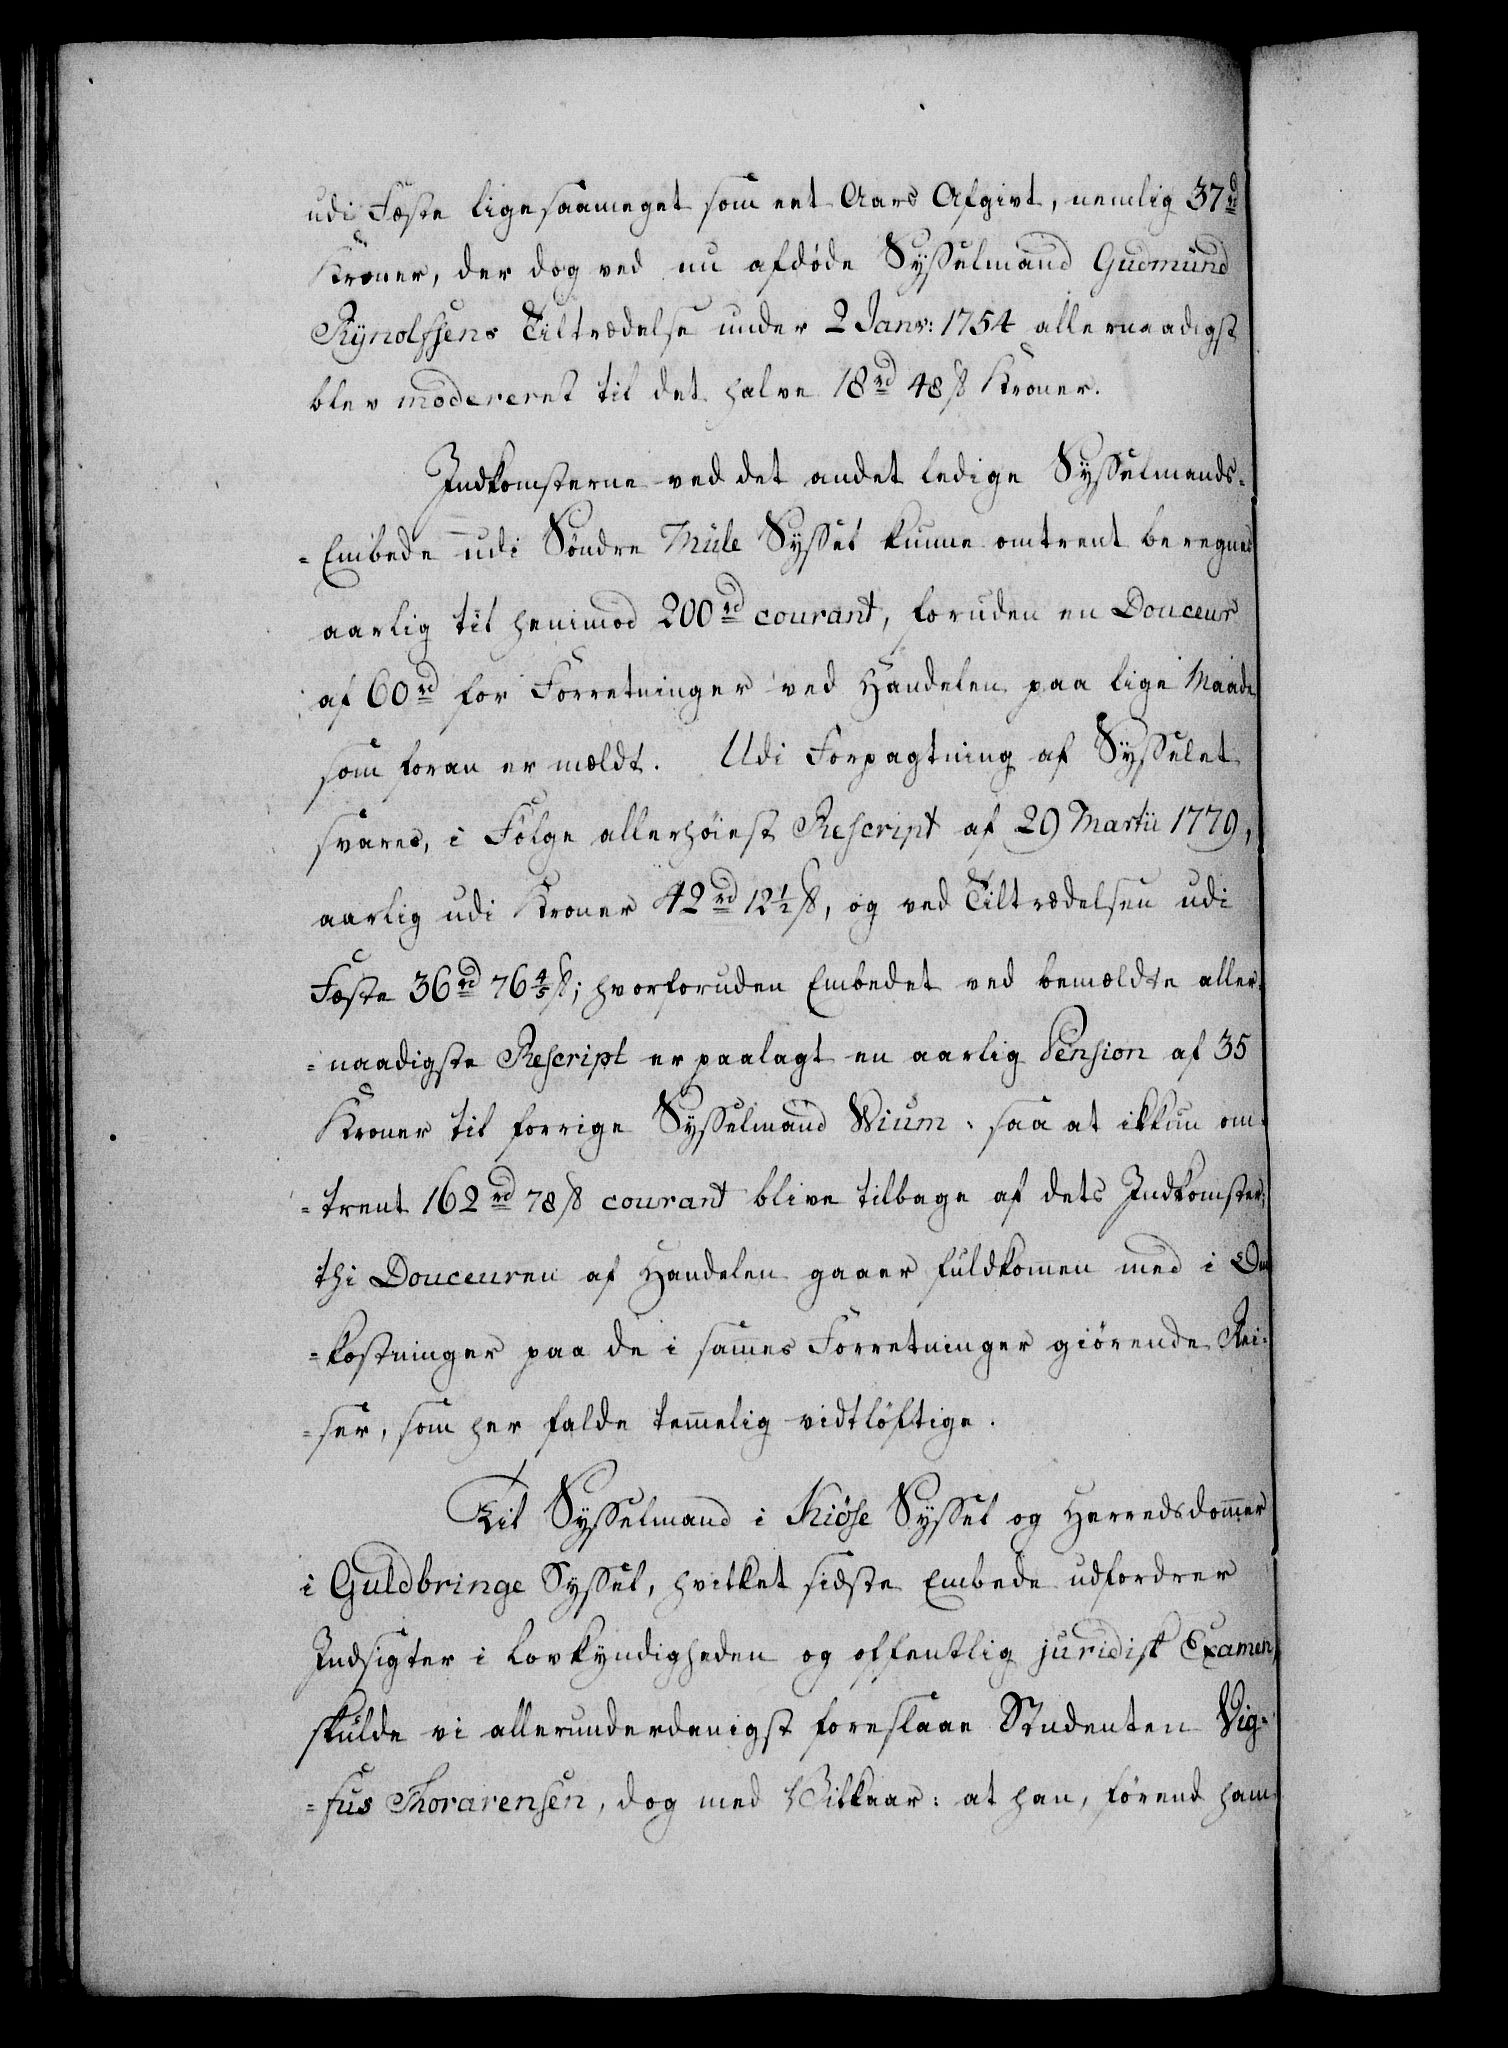 udi Fæste ligesaameget som eet Aars Afgivt, nemlig 37 rd
Kroner, der dog ved nu afdøde Sysselmand Gudmund
Rynolfsens Tiltrædelse under 2 Janv: 1754 allernaadigst
blev modereret til det halve 18 rd 48 ß Kroner.
Indkomsterne ved det andet ledige Sysselmands-
=Embede udi Søndre Mule Syssel kunne omtrent beregnes
aarlig til henimod 200 rd courant, foruden en Douceur
af 60 rd for Forretninger ved Handelen paa lige Maade
som foran er mældt. Udi Forpagtning af Sysselet
svares, i Følge allerhøiest Rescript af 29 Martii 1779,
aarlig udi Kroner 42 rd 12½ ß, og ved Tiltrædelsen udi
Fæste 36 rd 76 4/5 ß; hvorforuden Embedet ved bemældte aller-
=naadigste Rescript er paalagt en aarlig Pension af 35
Kroner til forrige Sysselmand Wium: saa at ikkun om-
=trent 162 rd 78 ß courant blive tilbage af dets Indkomster;
thi Douceuren af Handelen gaaer fuldkomen med i Om
=kostninger paa de i sames Forretninger giørende Rei-
=ser, som her falde temelig vidtløftige.
Til Sysselmand i Kiöse Syssel og Herredsdomer
i Guldbringe Syssel, hvilket sidste Embede udfordrer
Indsigter i Lovkyndigheden og offentlig juridisk Examen,
skulde vi allerunderdanigst foreslaae Studenten Vig-
=fus Thorarensen, dog med Vilkaar: at han, førend ham